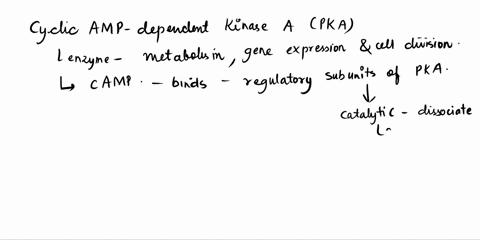 Cyclic AMP-dependent Kinase A (PKA)
enzyme - metabolism, gene expression & cell division.
↳ CAMP. - binds - regulatory subunits of PKA.
↓
catalytic - dissociate